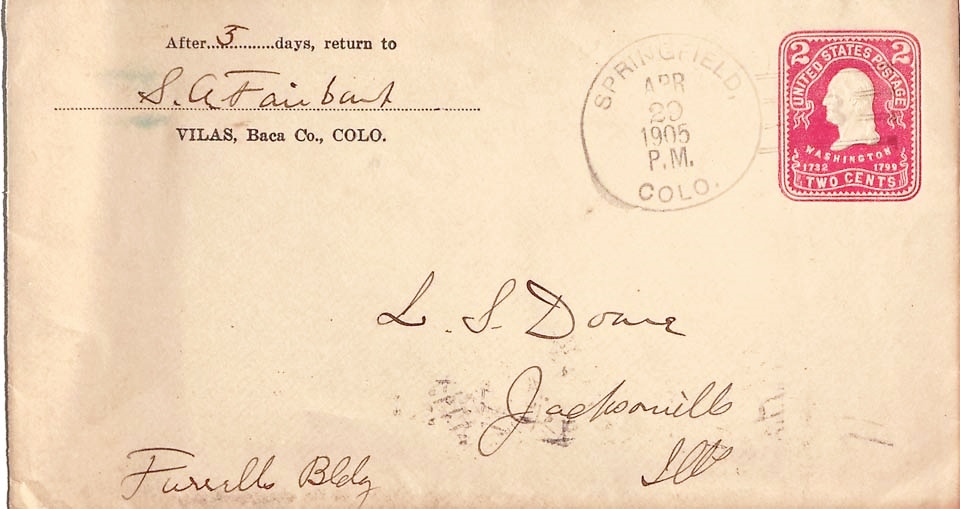 After 5 days, return to
S. A Fairbank
VILAS, Baca Co., COLO.
SPRINGFIELD,
APR
29
1905
P.M.
COLO.
2 UNITED STATES POSTAGE 2
WASHINGTON
1732 1799
TWO CENTS
L. S. Doane
Jacksonville
Ill
Bldg